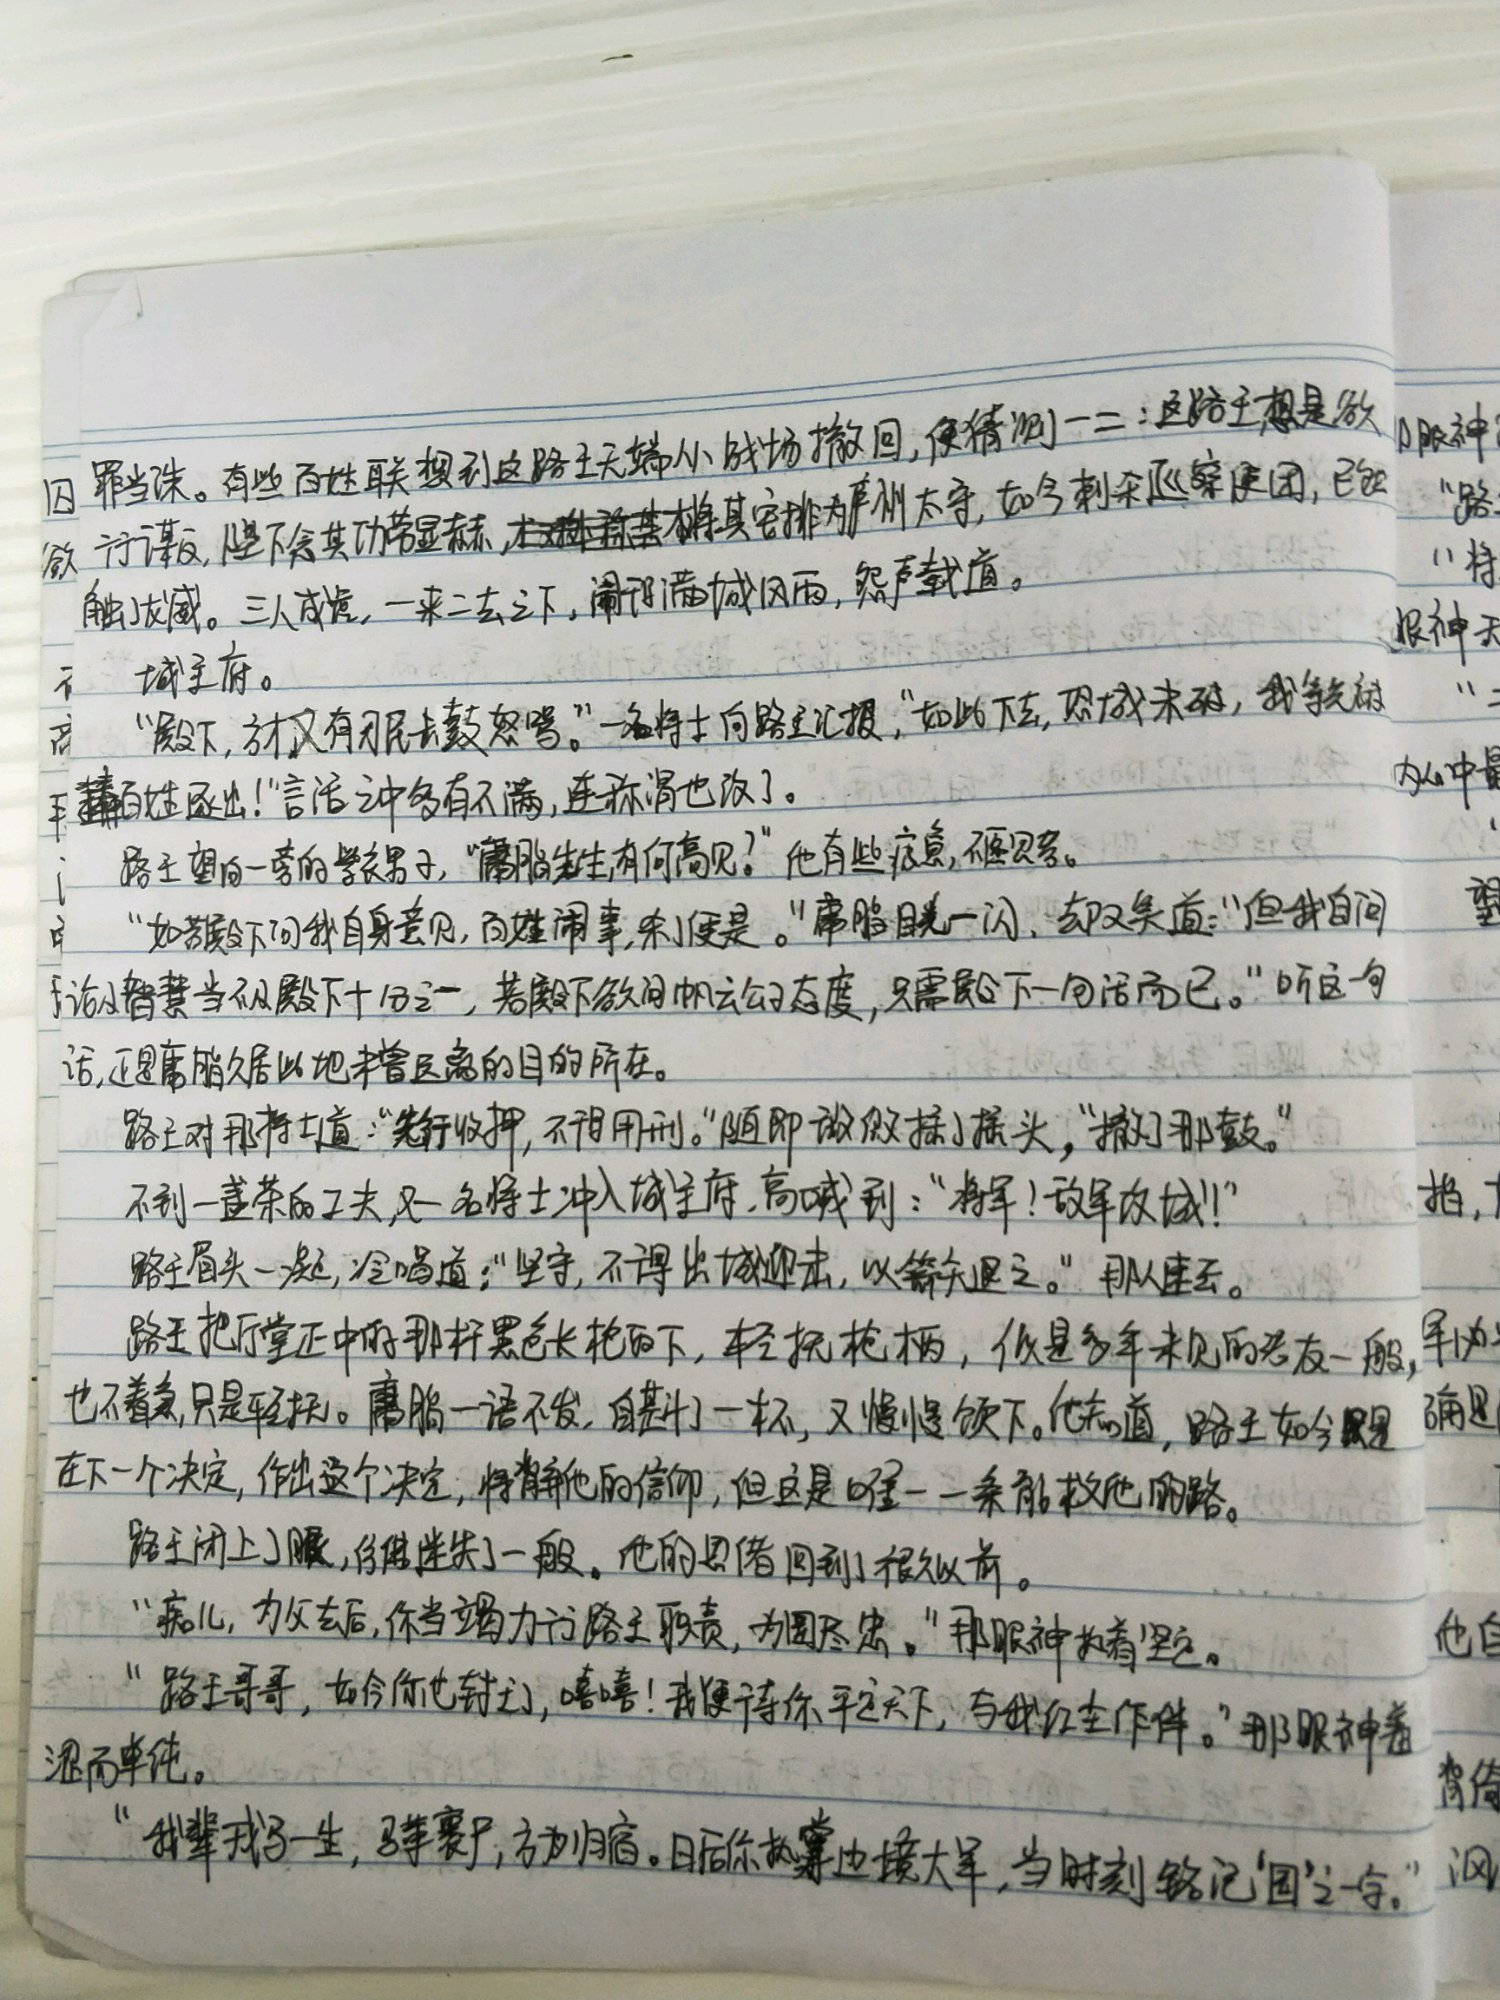 罪当诛。有些百姓联想到这路王无端从战场撤回，便猜测一二：这路王想是欲
行谋反，陛下念其功劳显赫，将其安排为庐州太守，如今刺杀巡察使团，已经
触了龙威。三人成虎，一来二去之下，闹得满城风雨，怨声载道。
城主府。
“殿下，方才又有刁民击鼓怒骂。”一名将士向路王汇报，“如此下去，恐城未破，我等先被
百姓逐出！”言语之中多有不满，连称谓也改了。
路王望向一旁的学衣男子，“庸脂先生，有何高见？”他有些疲惫，
“如若殿下问我自身意见，百姓闹事，杀了便是。”庸脂目光一闪，却又笑道：“但我自问
论智慧当不及殿下十分之一，若殿下欲问帆云公子态度，只需殿下一句话而已。”听这一句
话，正是庸脂久居此地未曾远离的目的所在。
路王对那将士道：“先行收押，不得用刑。”随即微微摇了摇头，“撤了那鼓。”
不到一盏茶的工夫，又一名将士冲入城主府，高喊到：“将军！敌军攻城！”
路王眉头一凝，冷喝道：“坚守，不得出城迎击，以箭矢退之。”那人离去。
路王把厅堂正中的那杆黑色长枪取下，轻抚枪柄，似是多年未见的老友一般，
也不着急，只是轻抚。庸脂一语不发，自斟了一杯，又慢慢饮下。他知道，路王如今只是
在下一个决定，作出这个决定，将背弃他的信仰，但这是唯一一条能救他的路。
路王闭上了眼，仿佛迷失了一般。他的思绪回到了很久以前。
“痴儿，为父去后，你当竭力行路王职责，为国尽忠。”那眼神执着坚定。
“路王哥哥，如今你也封王了，嘻嘻！我便待你平定天下，与我红尘作伴。”那眼神羞
涩而单纯。
“我辈戎马一生，马革裹尸，方为归宿。日后你执掌边境大军，当时刻铭记‘国’之一字。”